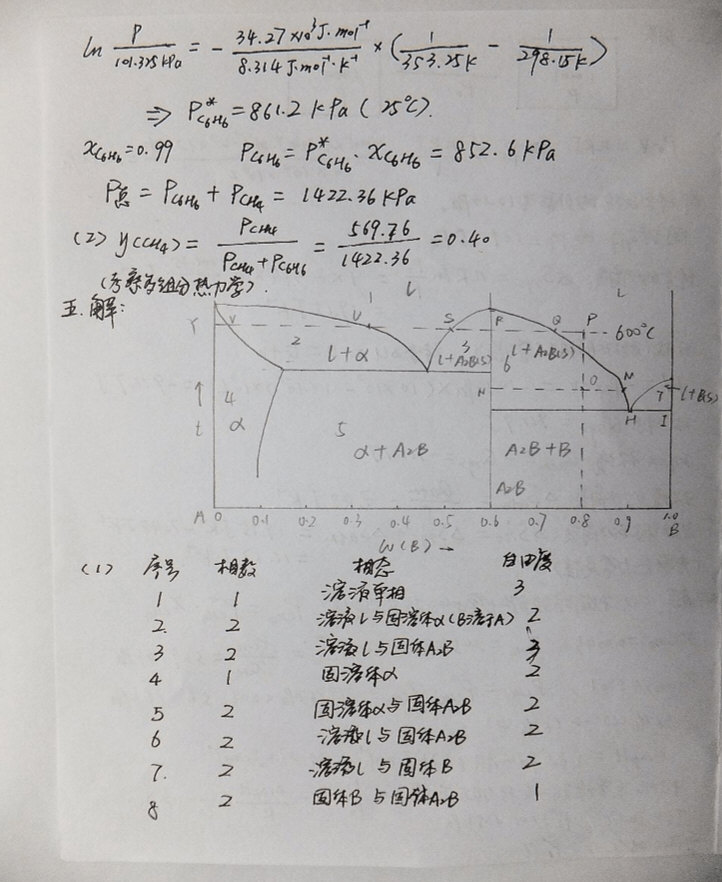 ln P/101.325kPa = - 34.27×10³J·mol⁻¹/8.314J·mol⁻¹·K⁻¹ × (1/353.25K - 1/298.15K)
⇒ P*C₆H₆ = 861.2 kPa (25℃).
xC₆H₆=0.99 PC₆H₆= P*C₆H₆·xC₆H₆ = 852.6kPa
P总 = PC₆H₆ + PCH₄ = 1422.36kPa
(2) y(CH₄) = PCH₄/PCH₄+PC₆H₆ = 569.76/1422.36 =0.40
(考察多组分热力学).
五.解:
1 L L
Y V U S R Q P 600℃
2 3
l+α l+A₂B(s) 6 l+A₂B(s)
N O M 7 l+B(s)
↑ 4 H I
t α 5
α+A₂B A₂B+B
A₂B
A 0 0.1 0.2 0.3 0.4 0.5 0.6 0.7 0.8 0.9 1.0
B
W(B) →
(1) 序号 相数 相态 自由度
1 1 溶液单相 3
2. 2 溶液l与固溶体α(B溶于A) 2
3 2 溶液l与固体A₂B 3
4 1 固溶体α 2
5 2 固溶体α与固体A₂B 2
6 2 溶液l与固体A₂B 2
7. 2 溶液l与固体B 2
8 2 固体B与固体A₂B 1